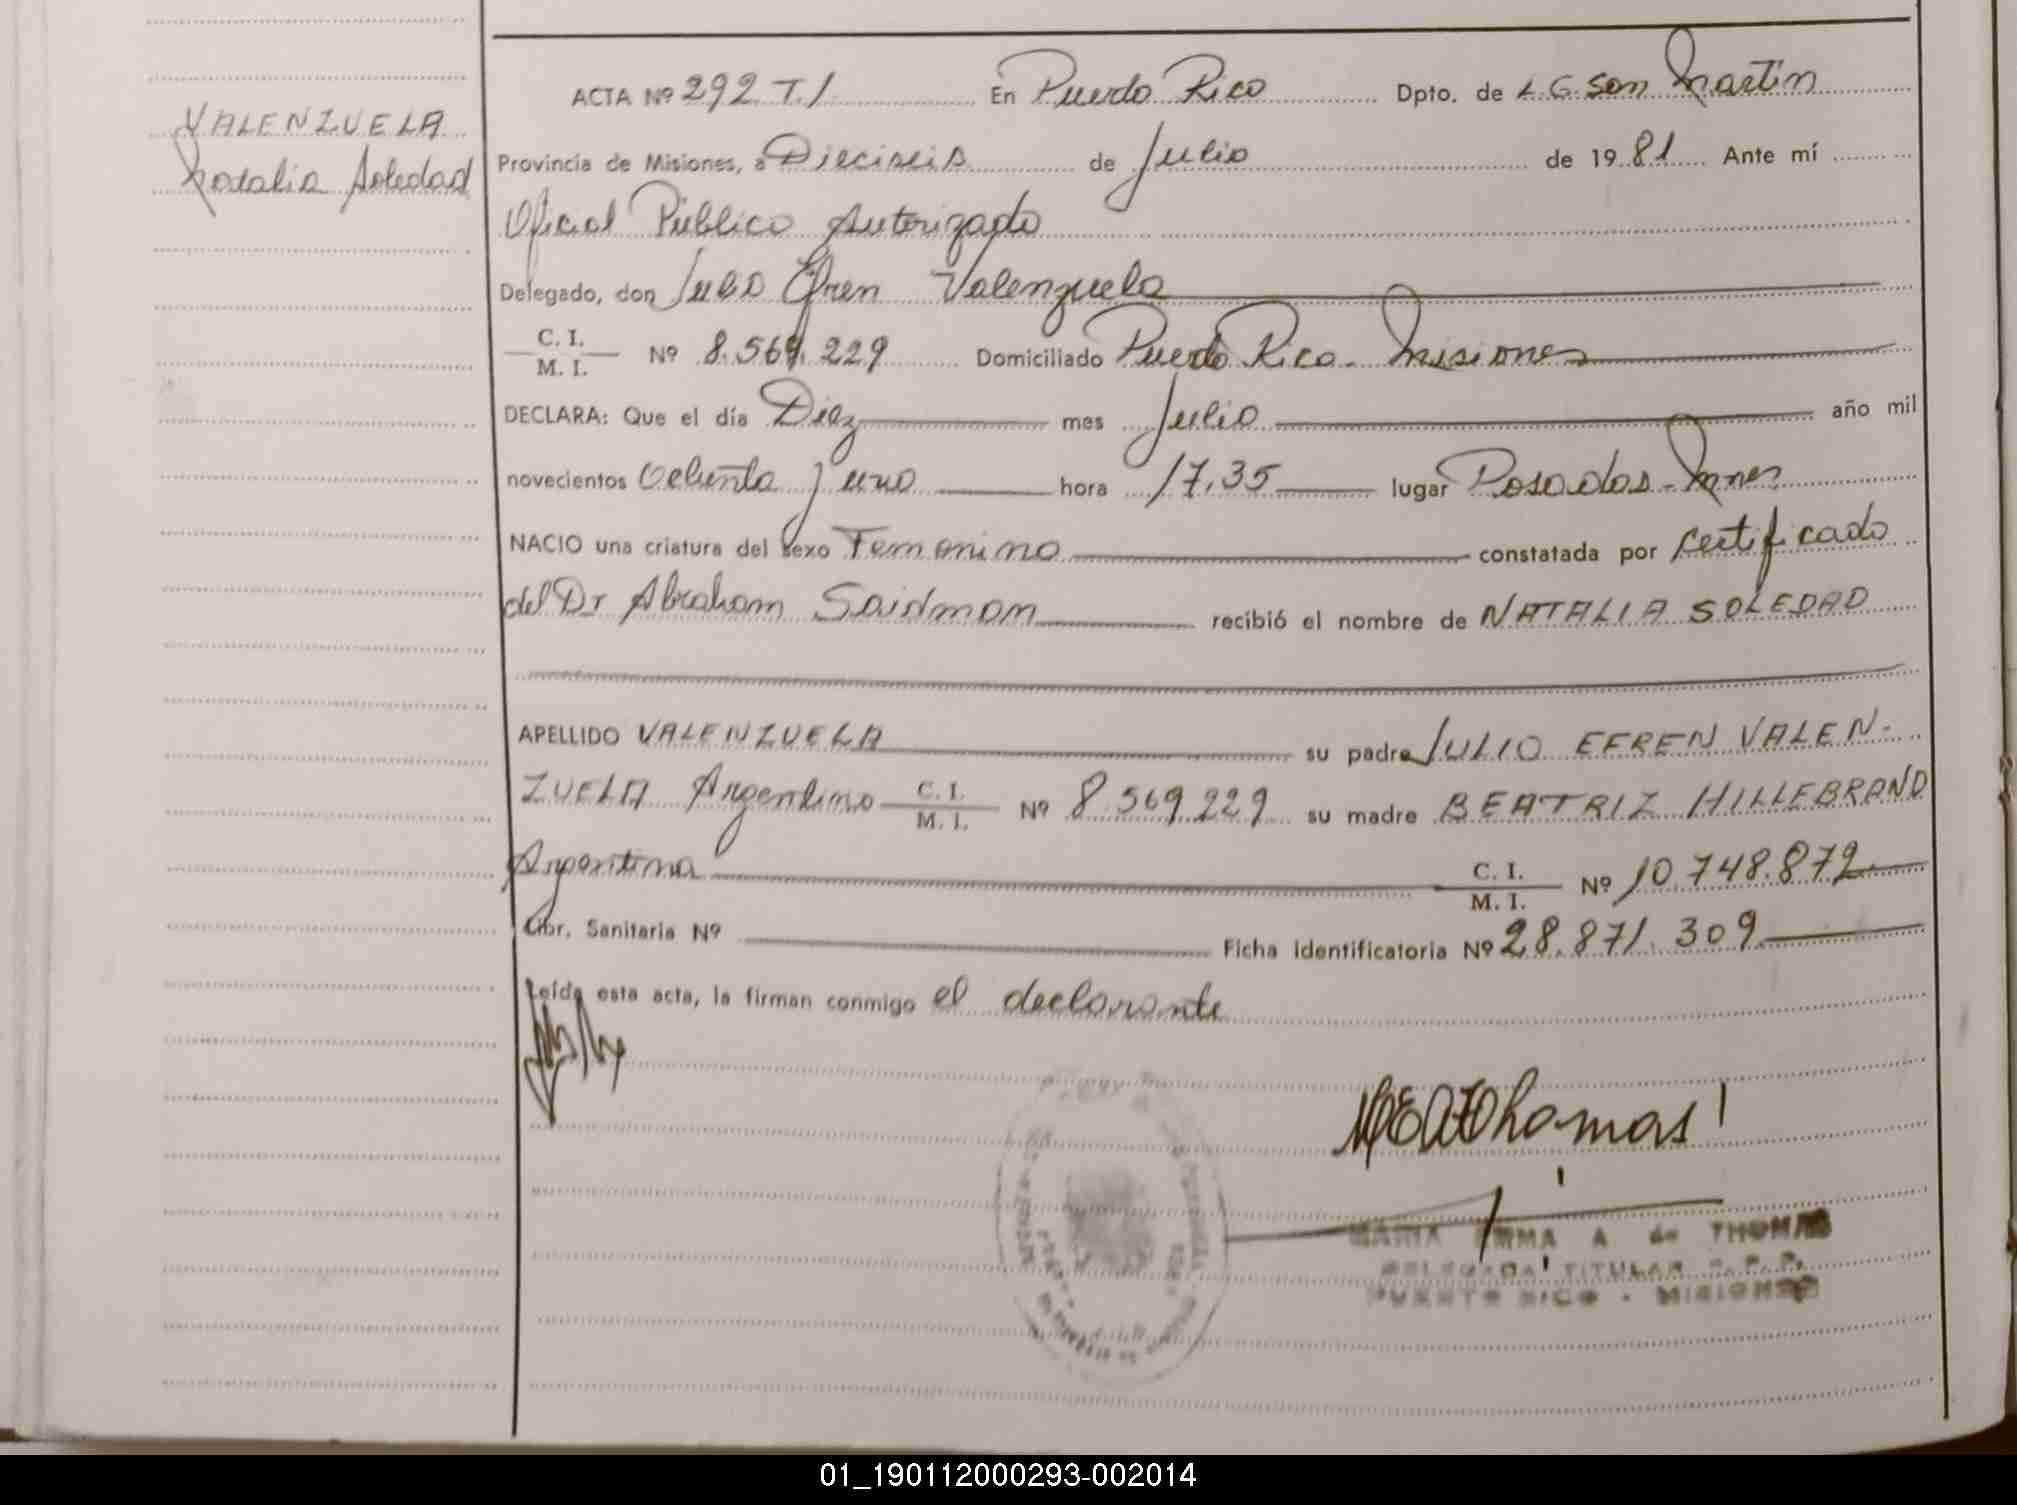 VALENZUELA
Natalia Soledad
ACTA Nº 292 T.I En Puerto Rico Dpto. de L.G. San Martín
Provincia de Misiones, a Dieciseis de Julio de 1981 Ante mí
Oficial Público Autorizado
Delegado, don Julio Efren Valenzuela
C. I.
M. I. Nº 8.569.229 Domiciliado Puerto Rico - Misiones
DECLARA: Que el día Diez mes Julio año mil
novecientos Ochenta y uno hora 17,35 lugar Posadas - Mnes
NACIO una criatura del sexo Femenino constatada por certificado
del Dr Abraham Saidman recibió el nombre de NATALIA SOLEDAD
APELLIDO VALENZUELA su padre JULIO EFREN VALEN-
ZUELA Argentino C. I. M. I. Nº 8.569.229 su madre BEATRIZ HILLEBRAND
Argentina C. I. M. I. Nº 10.748.872
Libr. Sanitaria Nº Ficha identificatoria Nº 28.871.309
Leída esta acta, la firman conmigo el declarante
MEAThomas
MARIA EMMA A de THOMAS
DELEGADA TITULAR R. P. P.
PUERTO RICO - MISIONES
01_190112000293-002014